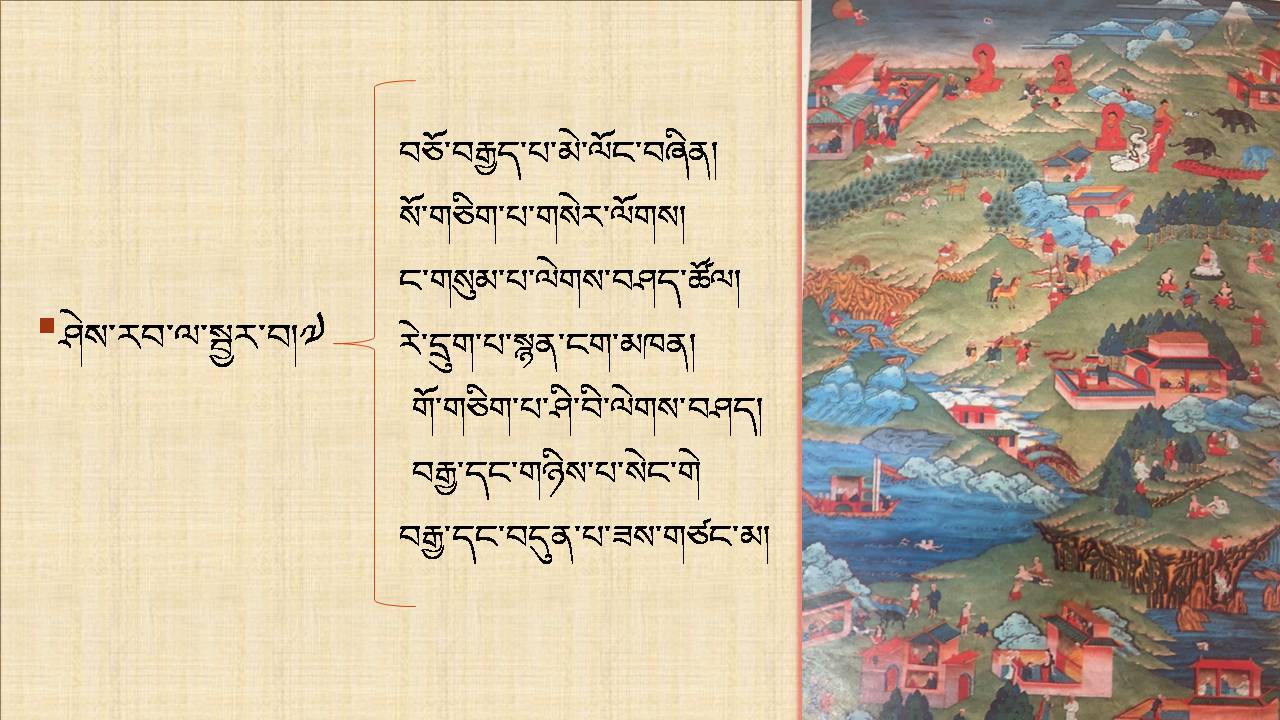 ཤེས་རབ་ལ་སྦྱར་བ།༧
བཅོ་བརྒྱད་པ་མེ་ལོང་བཞིན།
སོ་གཅིག་པ་གསེར་ལོགས།
ང་གསུམ་པ་ལེགས་བཤད་ཚོལ།
རེ་དྲུག་པ་སྙན་ངག་མཁན།
གོ་གཅིག་པ་ཤི་བི་ལེགས་བཤད།
བརྒྱ་དང་གཉིས་པ་སེང་གེ
བརྒྱ་དང་བདུན་པ་ཟས་གཙང་མ།